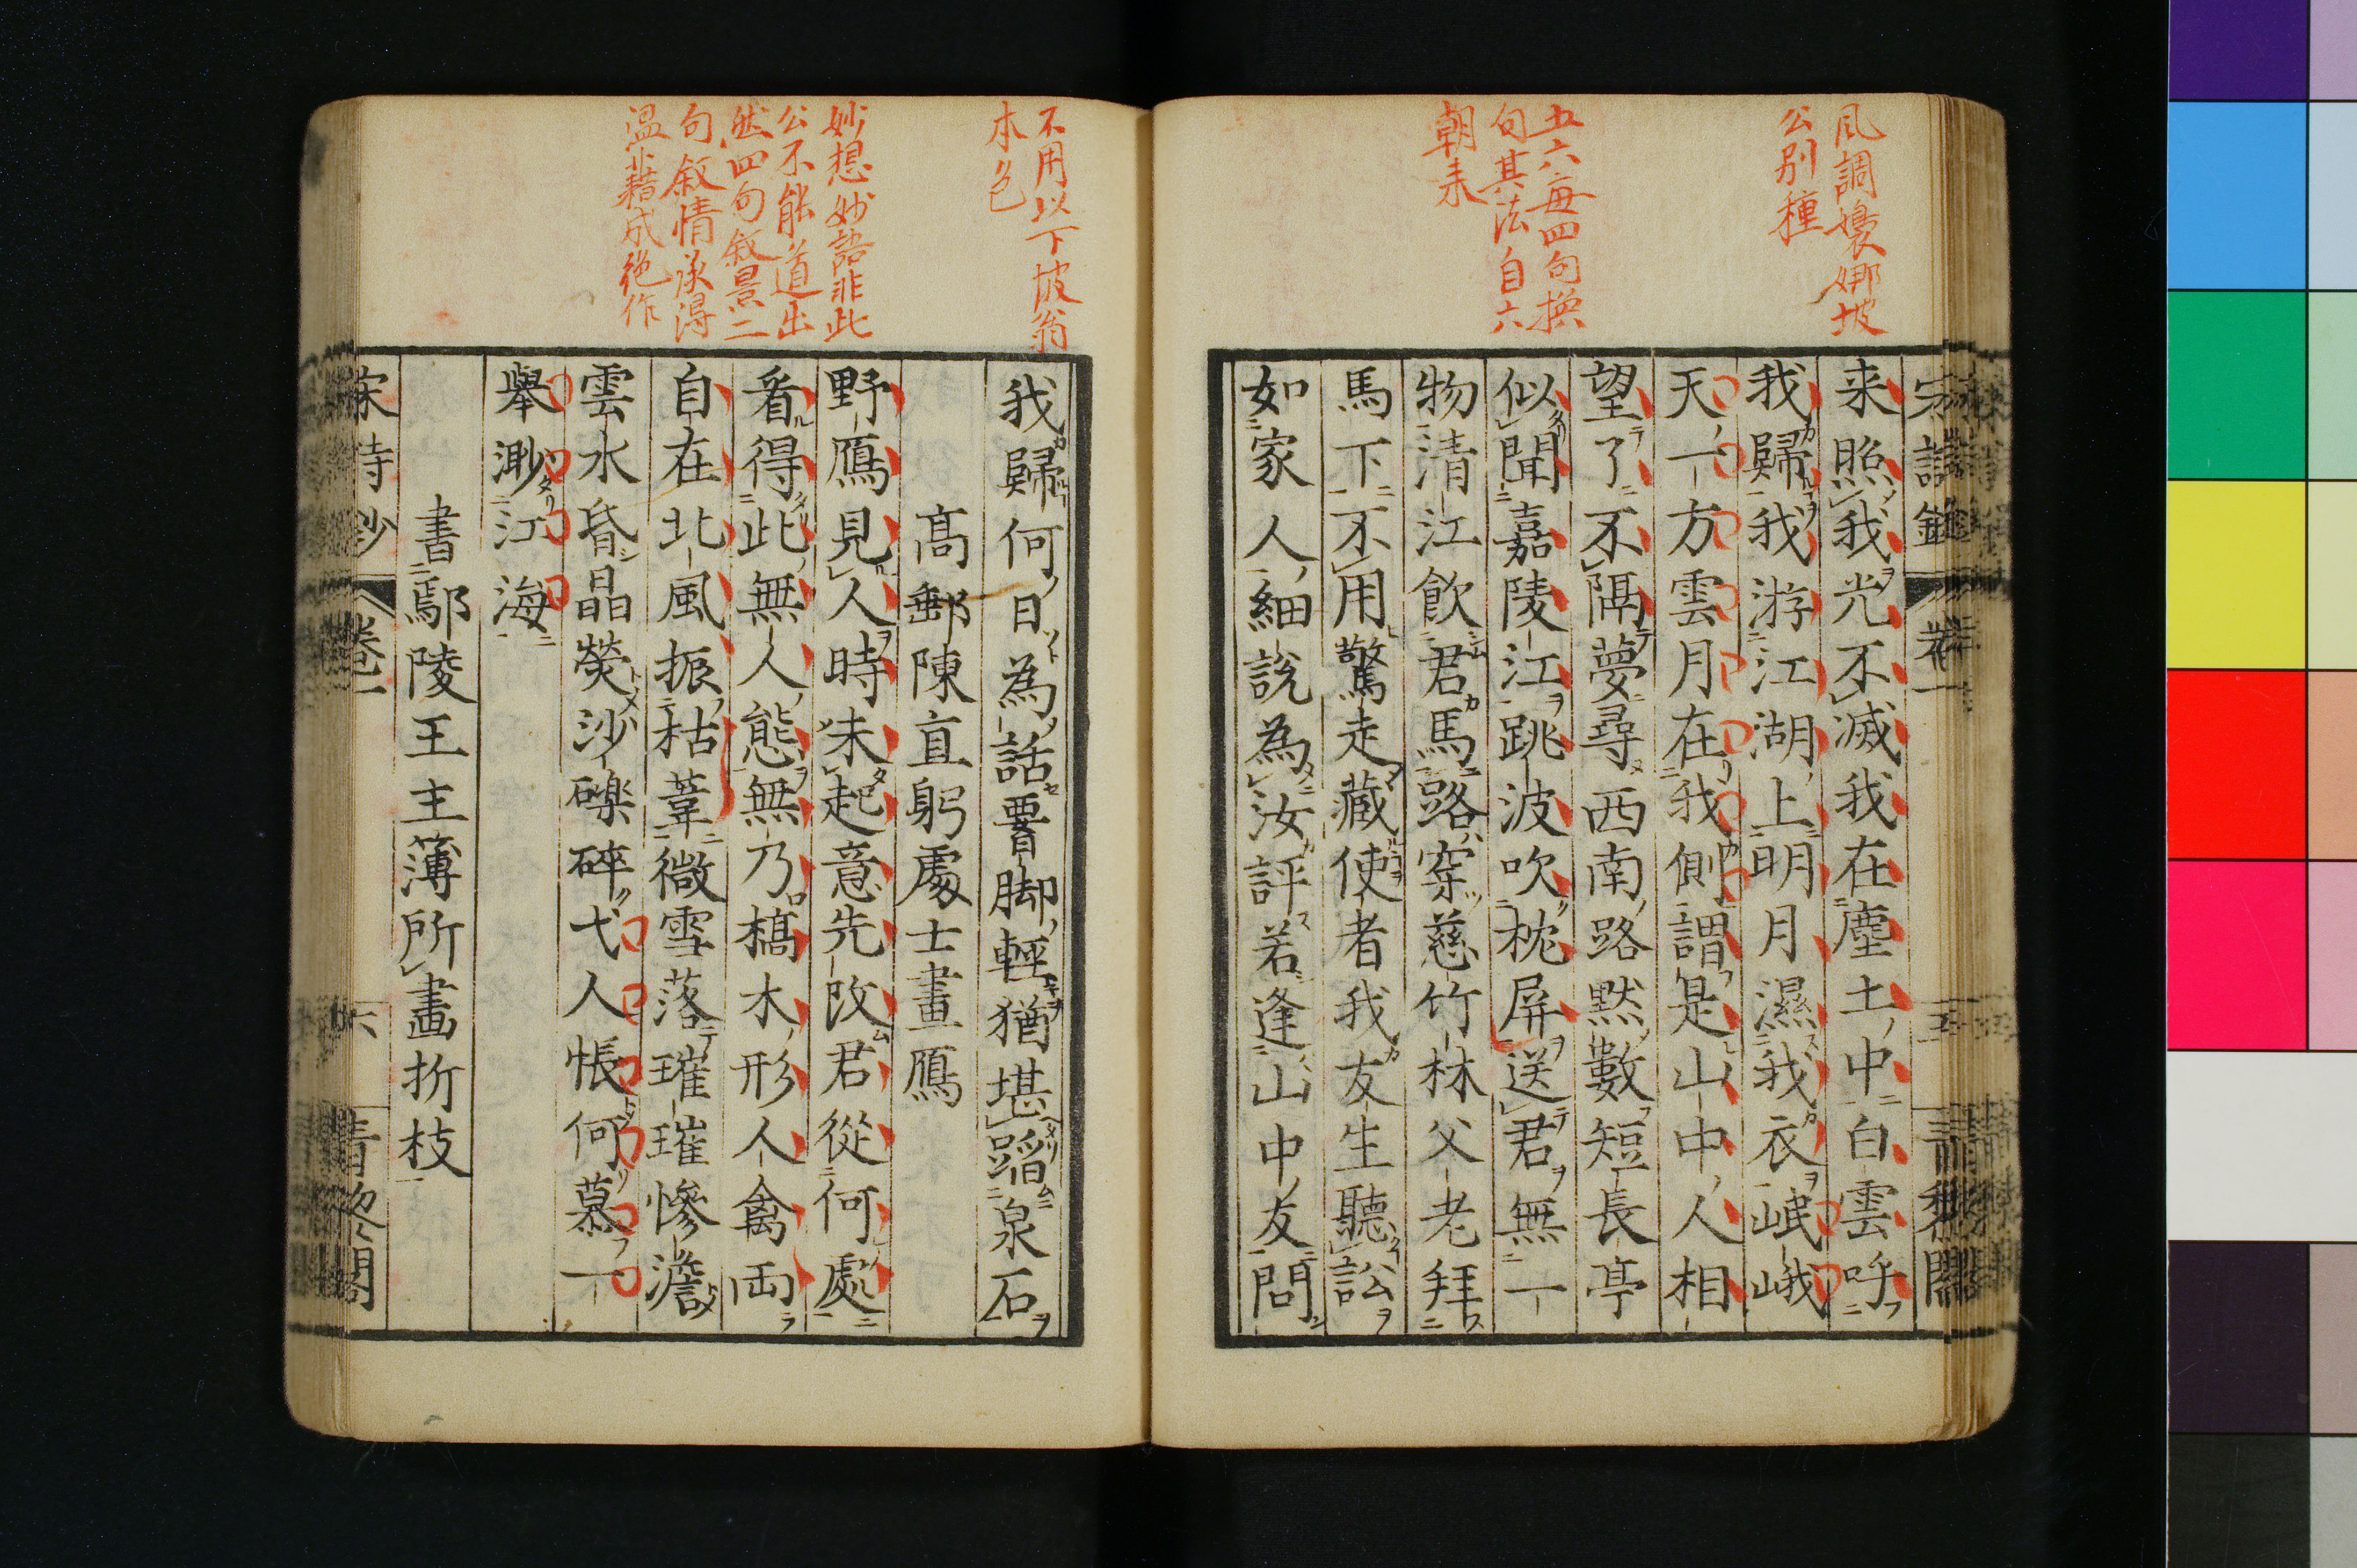 風調嫋娜坡
公別種
五六每四句換
句其法自六
朝来
宋詩鈔 卷一 五 青黎閣
来照我光不滅我在塵土中白雲呼
我歸我游江湖上明月濕我衣岷峨
天一方雲月在我側謂是山中人相
望了不隔夢尋西南路默數短長亭
似聞嘉陵江跳波吹枕屏送君無一
物清江飲君馬路穿慈竹林父老拜
馬下不用驚走藏使者我友生聽訟
如家人細說為汝評若逢山中友問
不用以下坡翁
本色
妙想妙語非此
公不能道出
然四句敘景二
句敘情承得
温藉成絶作
我歸何日為話腰脚輕猶堪蹈泉石
高郵陳直躬處士畫鴈
野鴈見人時未起意先改君從何處
看得此無人態無乃槁木形人禽兩
自在北風振枯葦微雪落璀璀慘澹
雲水昏晶熒沙礫碎弋人悵何慕一
舉渺江海
書鄢陵王主薄所畫折枝
宋詩鈔 卷一 六 青黎閣